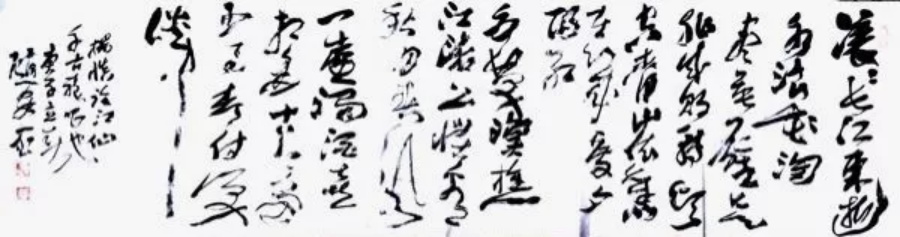 滚滚长江东逝
水浪花淘
尽英雄是
非成败转头
空青山依旧
在几度夕
阳红
白发渔樵
江渚上惯看
秋月春风
一壶浊酒喜
相逢古今多
少事都付笑
谈中
杨慎临江仙
千古绝唱也
庚子立